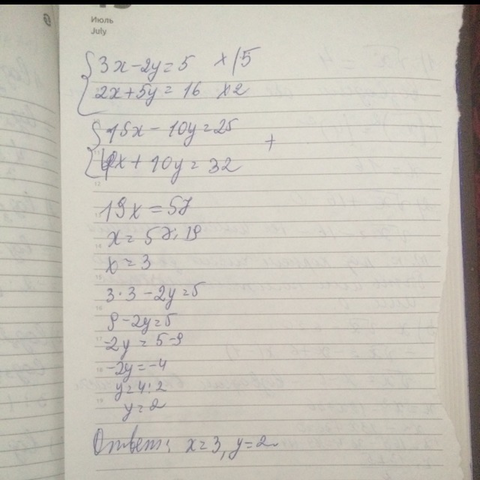 Июль
July
3x-2y=5 x|5
2x+5y=16 x2
15x-10y=25
4x+10y=32 +
19x=57
x=57:19
x=3
3·3-2y=5
9-2y=5
-2y=5-9
-2y=-4
y=4:2
y=2
Ответ: x=3, y=2.